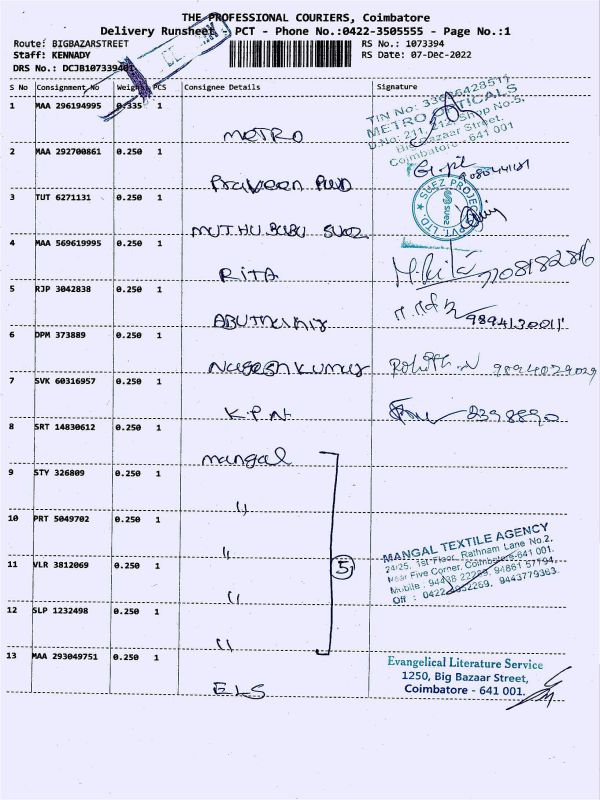 THE PROFESSIONAL COURIERS, Coimbatore
Delivery Runsheet - PCT - Phone No.:0422-3505555 - Page No.:1
Route: BIGBAZARSTREET
RS No.: 1073394
Staff: KENNADY
RS Date: 07-Dec-2022
DRS No.: DCJB107339401
S No Consignment No Weight PCS Consignee Details Signature
1 MAA 296194995 0.335 1
METRO
TIN No:
METRO OPTICALS
D.No: 211, 212, Shop No-5,
Big Bazaar Street,
Coimbatore - 641 001
2 MAA 292700861 0.250 1
Praveen
3 TUT 6271131 0.250 1
MUTHU BABU SUEZ
SUEZ PROJECTS PVT. LTD.
suez
4 MAA 569619995 0.250 1
RITA
M. Rita 7708182816
5 RJP 3042838 0.250 1
6 DPM 373889 0.250 1
Nagesh Kumar
Rohith.N 9894029029
7 SVK 60316957 0.250 1
K.P.N
2398890
8 SRT 14830612 0.250 1
mangal
9 STY 326809 0.250 1
"
10 PRT 5049702 0.250 1
"
5
MANGAL TEXTILE AGENCY
24/25, 1st Floor, Rathnam Lane No.2,
Near Five Corner, Coimbatore-641 001.
Mobile : 94438 22269, 94861 57194,
Off : 0422 - 9443779363.
11 VLR 3812069 0.250 1
"
12 SLP 1232498 0.250 1
"
13 MAA 293049751 0.250 1
ELS
Evangelical Literature Service
1250, Big Bazaar Street,
Coimbatore - 641 001.